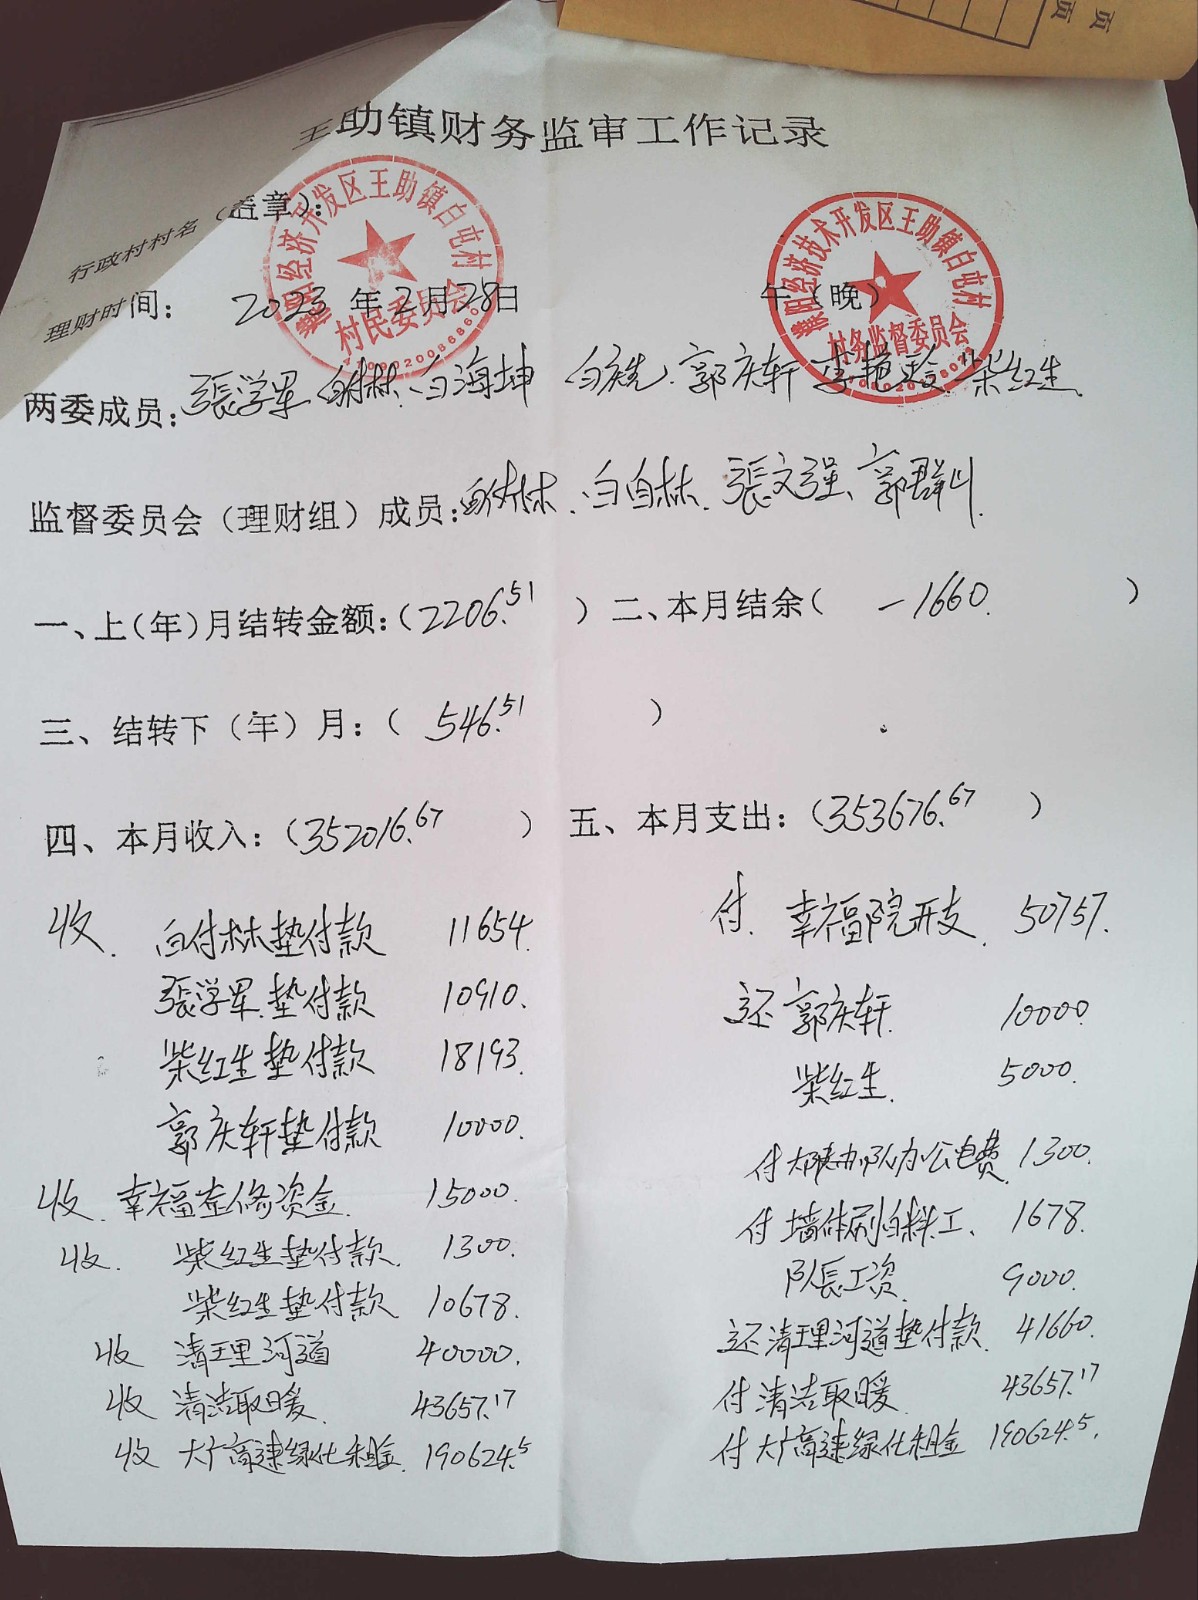 页
页
王助镇财务监审工作记录
行政村村名（盖章）：
濮阳经济开发区王助镇白屯村
村民委员会
濮阳经济技术开发区王助镇白屯村
村务监督委员会
理财时间： 2023 年 2 月 28 日 午（晚）
两委成员：張学军 白付林、白海坤 白庆先、郭庆轩 柴红生
监督委员会（理财组）成员：白付林、白自林、張文强、郭群山
一、上（年）月结转金额：（2206.51 ）二、本月结余（ -1660. ）
三、结转下（年）月：（ 546.51 ）
四、本月收入：（352016.67 ） 五、本月支出：（353676.67 ）
收. 白付林垫付款 11654.
張学军.垫付款 10910.
柴红生垫付款 18193.
郭庆轩垫付款 10000.
收. 幸福院维修资金 15000.
收. 柴红生垫付款. 1300.
柴红生垫付款 10678.
收 清理河道 40000.
收 清洁取暖. 43657.17
收 大广高速绿化租金. 190624.5
付. 幸福院开支. 50757.
还 郭庆轩. 10000.
柴红生. 5000.
付 办公电费 1300.
付 墙体刷白料工、 1678.
队長工资 9000.
还清理河道垫付款. 41660.
付 清洁取暖 43657.17
付 大广高速绿化租金 190624.5.